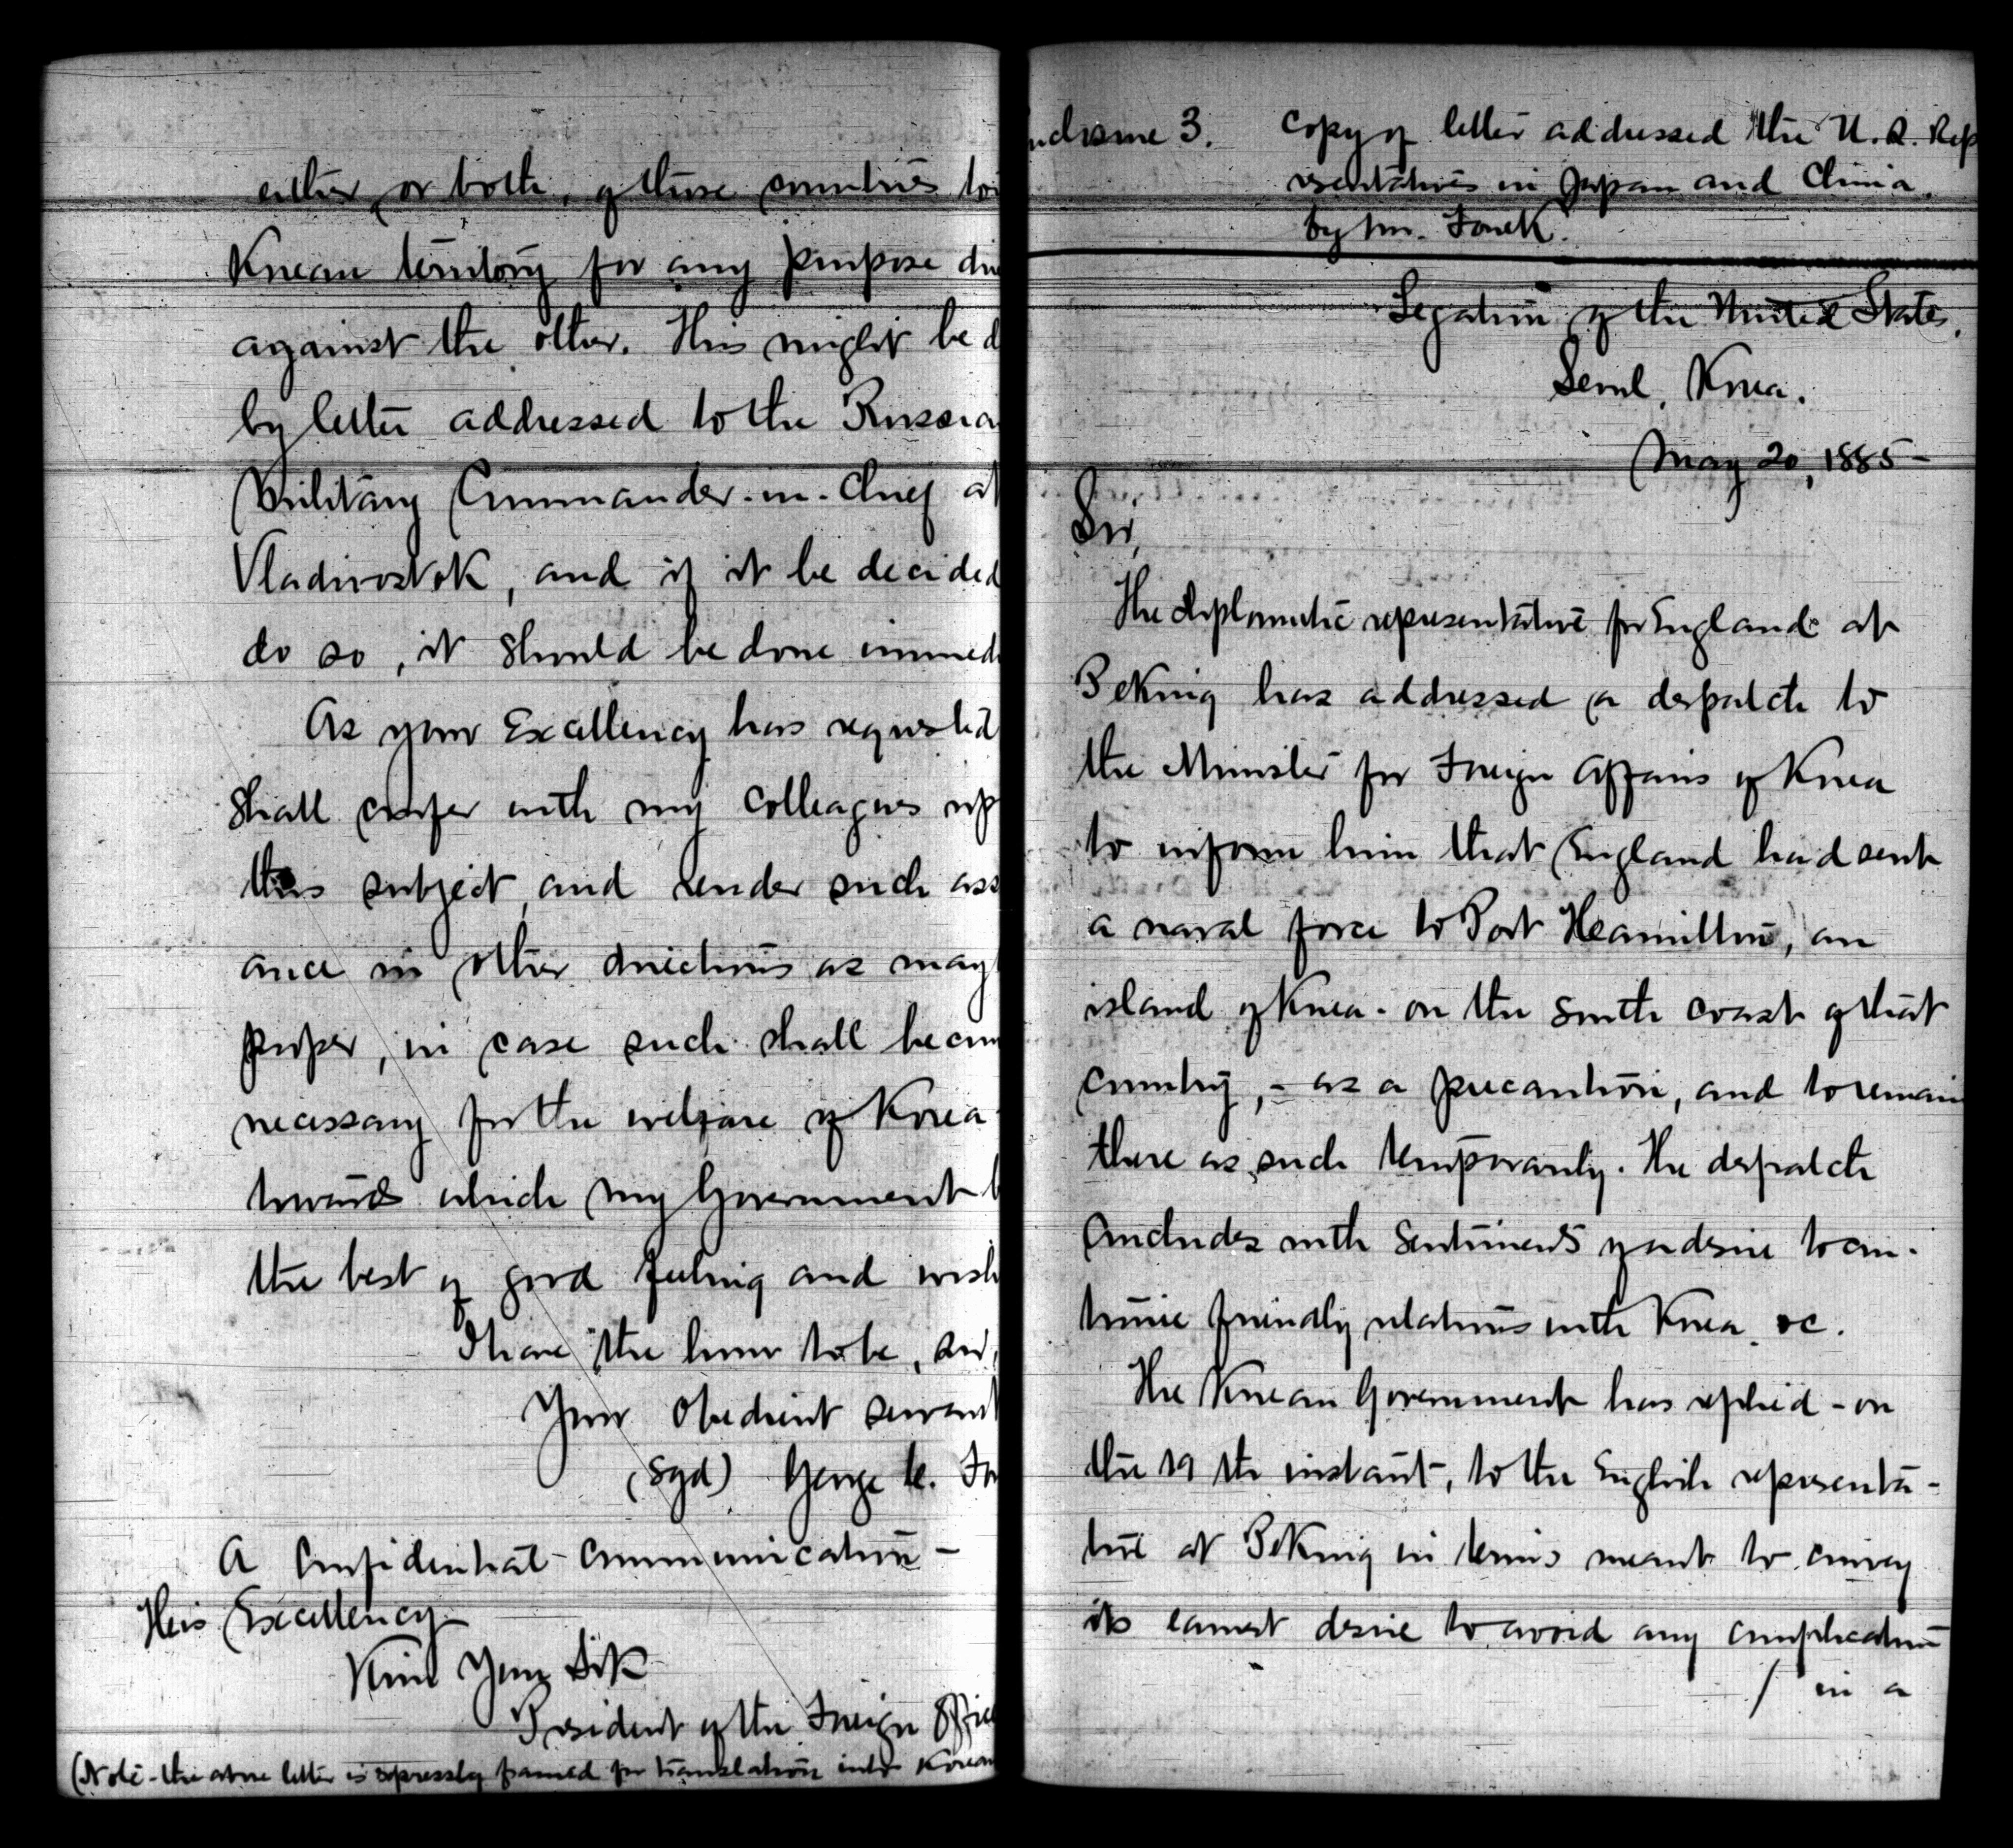 either, or both, of these countries to
Korean territory for any purpose
against the other. This might be d
by letter addressed to the Russia
Military Commander-in-Chief at
Vladivostok, and if it be decided
do so, it should be done immed
As your Excellency has requested
shall confer with my colleagues up
this subject, and render such ass
ance in other directions as may
proper, in case such shall becom
necessary for the welfare of Korea
towards which my Government
the best of good feeling and wish
I have the honor to be, sir,
Your obedient servant
(sgd) George C. Fo
A Confidential Communication -
His Excellency
Kim Yun Sik
President of the Foreign Office
(Note - the above letter is expressly framed for translation into Korean
nclosure 3. Copy of letter addressed the U.S. Rep
resentatives in Japan and China.
by Mr. Foulk.
Legation of the United States,
Seoul, Korea.
May 20, 1885 -
Sir,
The diplomatic representative for England at
Peking has addressed a despatch to
the Minister for Foreign Affairs of Korea
to inform him that England had sent
a naval force to Port Hamilton, an
island of Korea - on the south coast of that
country, - as a precaution, and to remain
there as such temporarily. The despatch
concludes with sentiments of a desire to con-
tinue friendly relations with Korea &c.
The Korean Government has replied - on
the 19th instant, to the English representa-
tive at Peking in terms meant to convey
its earnest desire to avoid any complication
/ in a